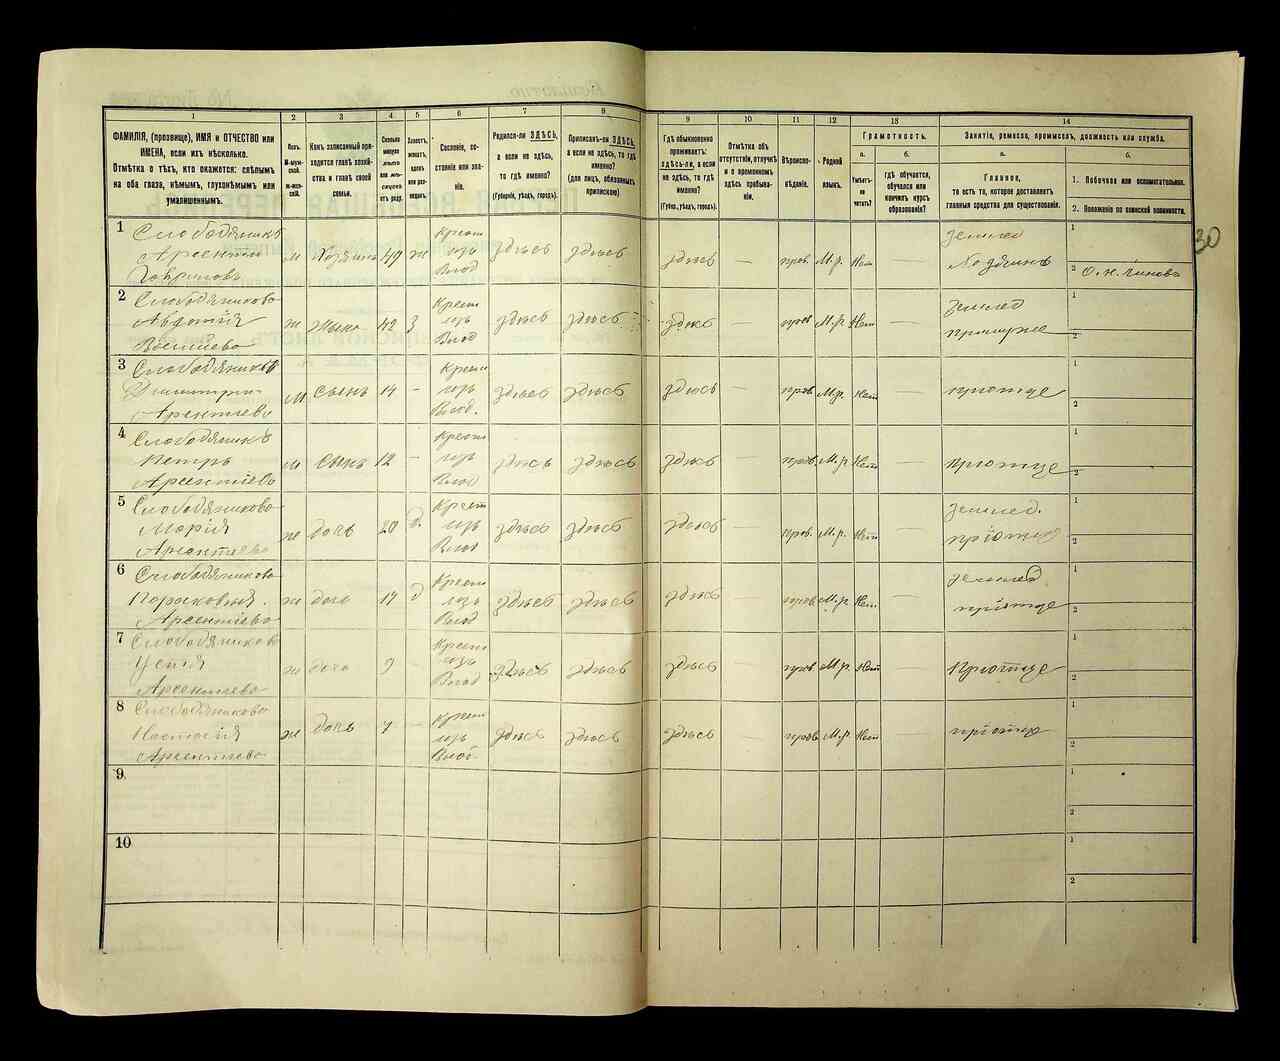 1 2 3 4 5 6 7 8 9 10 11 12 13 14
ФАМИЛІЯ, (прозвище), ИМЯ и ОТЧЕСТВО или
ИМЕНА, если ихъ нѣсколько.
Отмѣтка о тѣхъ, кто окажется: слѣпымъ
на оба глаза, нѣмымъ, глухонѣмымъ или
умалишеннымъ.
Полъ.
М-муж-
ской.
Ж-жен-
скій.
Какъ записанный при-
ходится главѣ хозяй-
ства и главѣ своей
семьи.
Сколько
минуло
лѣтъ
или мѣ-
сяцевъ
отъ роду.
Холостъ,
женатъ,
вдовъ
или раз-
веденъ.
Сословіе, со-
стояніе или зва-
ніе.
Родился-ли ЗДѢСЬ,
а если не здѣсь,
то гдѣ именно?
(Губернія, уѣздъ, городъ).
Приписанъ-ли ЗДѢСЬ,
а если не здѣсь, то гдѣ
именно?
(для лицъ, обязанныхъ
припискою)
Гдѣ обыкновенно
проживаетъ:
здѣсь-ли, а если
не здѣсь, то гдѣ
именно?
(Губер., уѣздъ, городъ).
Отмѣтка объ
отсутствіи, отлучкѣ
и о временномъ
здѣсь пребыва-
ніи.
Вѣроиспо-
вѣданіе.
Родной
языкъ.
Грамотность.
а.
Умѣетъ-
ли
читать?
б.
гдѣ обучается,
обучался или
кончилъ курсъ
образованія?
Занятіе, ремесло, промыселъ, должность или служба.
а.
Главное,
то есть то, которое доставляетъ
главныя средства для существованія.
б.
1. Побочное или вспомогательное.
2. Положеніе по воинской повинности.
30
1 Слободяникъ
Арсентій м Хозяинъ 49 ж здѣсь здѣсь здѣсь — прав. М.р. Нет — землед Хозяинъ
Гавриловъ
2 Слободяникова
Авдотія ж жена 42 з здѣсь здѣсь здѣсь — прав М.р Нет — землед при муже
3 Слободяникъ
Дмитрій м сынъ 14 - здѣсь здѣсь здѣсь — прав. М.р. Нет — при отце
4 Слободяникъ
Петръ м сынъ 12 - здѣсь здѣсь здѣсь — прав. М.р. Нет — при отце
Арсентіево
5 Слободяникова
Марія ж дочь 20 д. здѣсь здѣсь здѣсь — прав. М.р. Нет — землед. при отце
Арсентіева
6 Слободяникова
Парасковія ж дочь 17 д здѣсь здѣсь здѣсь — прав М.р. Нет — землед при отце
Арсентіева
7 Слободяникова
ж дочь 9 здѣсь здѣсь здѣсь — прав М.р. Нет — при отце
Арсентіева
8 Слободяникова
Настасія ж дочь 7 - здѣсь здѣсь здѣсь — прав М.р. Нет — при отце
Арсентіева
9
10